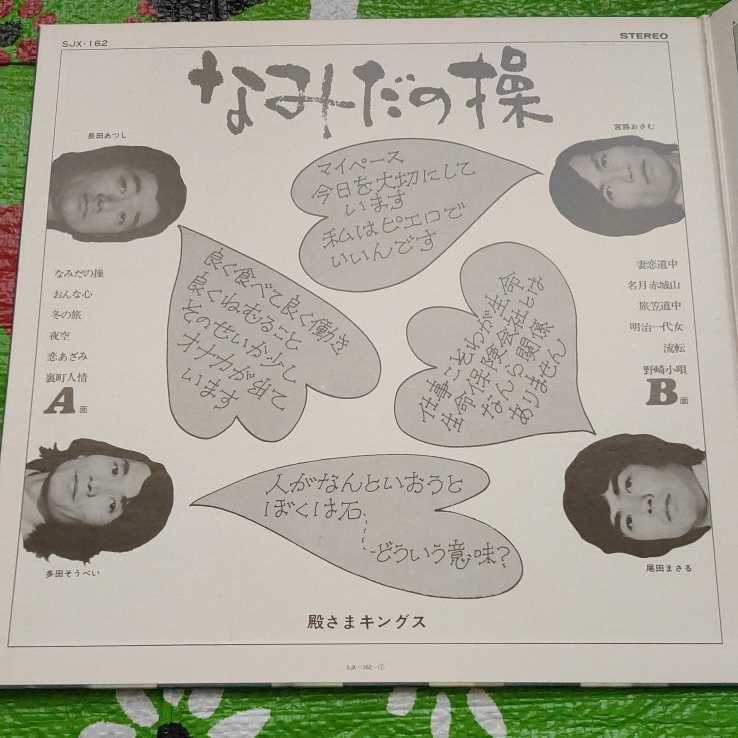 SJX-162
STEREO
なみだの操
長田あつし
宮路おさむ
マイペース
今日を大切にして
います
私はピエロで
いいんです
良く食べて良く働き
良くねむること
そのせいか少し
オナカが出て
います
仕事こそわが生命
生命保険会社とは
なんら関係
ありません
なみだの操
おんな心
冬の旅
夜空
恋あざみ
裏町人情
A面
妻恋道中
名月赤城山
旅笠道中
明治一代女
流転
野崎小唄
B面
人がなんといおうと
ぼくは石……
……どういう意味?
多田そうべい
尾田まさる
殿さまキングス
SJX-162-①